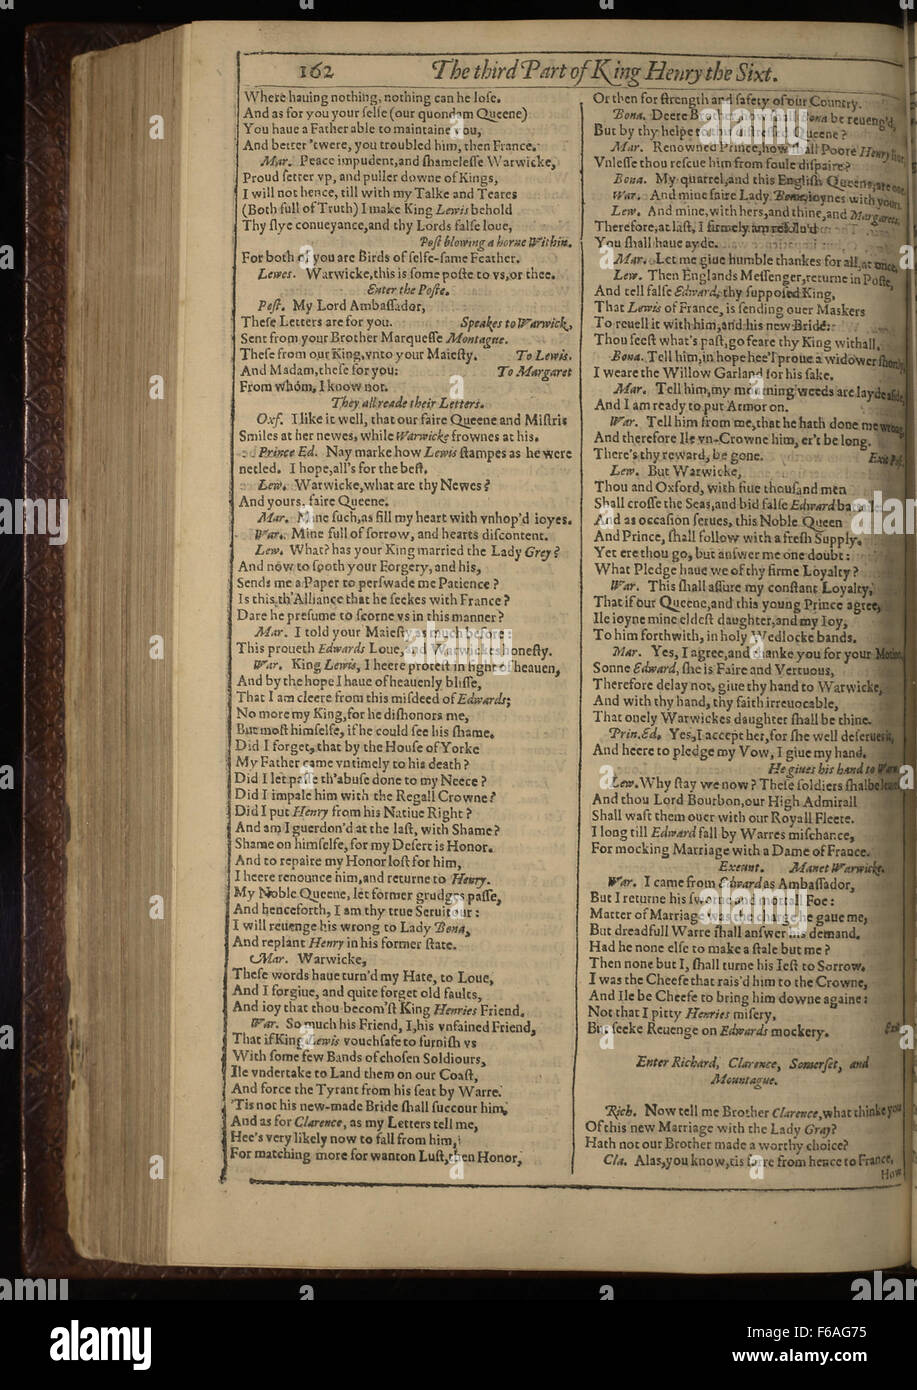 162
The third Part of King Henry the Sixt.
Where hauing nothing, nothing can he lose.
And as for you your selfe (our quondam Queene)
You haue a Father able to maintaine you,
And better 'twere, you troubled him, then France.
Mar. Peace impudent, and shamelesse Warwicke,
Proud setter vp, and puller downe of Kings,
I will not hence, till with my Talke and Teares
(Both full of Truth) I make King Lewis behold
Thy slye conueyance, and thy Lords false loue,
Post blowing a horne Within.
For both of you are Birds of selfe-same Feather.
Lewes. Warwicke, this is some poste to vs, or thee.
Enter the Poste.
Post. My Lord Ambassador,
These Letters are for you. Speakes to Warwick,
Sent from your Brother Marquesse Montague.
These from our King, vnto your Maiesty. To Lewis.
And Madam, these for you: To Margaret
From whom, I know not.
They all reade their Letters.
Oxf. I like it well, that our faire Queene and Mistris
Smiles at her newes, while Warwicke frownes at his.
Prince Ed. Nay marke how Lewis stampes as he were
netled. I hope, all's for the best.
Lew. Warwicke, what are thy Newes?
And yours, faire Queene.
Mar. Mine such, as fill my heart with vnhop'd ioyes.
War. Mine full of sorrow, and hearts discontent.
Lew. What? has your King married the Lady Grey?
And now to sooth your Forgery, and his,
Sends me a Paper to perswade me Patience?
Is this th'Alliance that he seekes with France?
Dare he presume to scorne vs in this manner?
Mar. I told your Maiesty as much before:
This proueth Edwards Loue, and Warwickes honesty.
War. King Lewis, I heere protest in sight of heauen,
And by the hope I haue of heauenly blisse,
That I am cleere from this misdeed of Edwards;
No more my King, for he dishonors me,
But most himselfe, if he could see his shame.
Did I forget, that by the House of Yorke
My Father came vntimely to his death?
Did I let passe th'abuse done to my Neece?
Did I impale him with the Regall Crowne?
Did I put Henry from his Natiue Right?
And am I guerdon'd at the last, with Shame?
Shame on himselfe, for my Desert is Honor.
And to repaire my Honor lost for him,
I heere renounce him, and returne to Henry.
My Noble Queene, let former grudges passe,
And henceforth, I am thy true Seruitour:
I will reuenge his wrong to Lady Bona,
And replant Henry in his former state.
Mar. Warwicke,
These words haue turn'd my Hate, to Loue,
And I forgiue, and quite forget old faults,
And ioy that thou becom'st King Henries Friend.
War. So much his Friend, I, his vnfained Friend,
That if King Lewis vouchsafe to furnish vs
With some few Bands of chosen Soldiours,
Ile vndertake to Land them on our Coast,
And force the Tyrant from his seat by Warre.
'Tis not his new-made Bride shall succour him,
And as for Clarence, as my Letters tell me,
Hee's very likely now to fall from him,
For matching more for wanton Lust, then Honor,
Or then for strength and safety of our Country.
Bona. Deere Brother, how shall Bona be reueng'd,
But by thy helpe to this distressed Queene?
Mar. Renowned Prince, how shall Poore Henry liue,
Vnlesse thou rescue him from foule dispaire?
Bona. My quarrel, and this English Queens, are one.
War. And mine faire Lady Bona, ioynes with yours.
Lew. And mine, with hers, and thine, and Margarets.
Therefore, at last, I firmely am resolu'd
You shall haue ayde.
Mar. Let me giue humble thankes for all, at once.
Lew. Then Englands Messenger, returne in Poste,
And tell false Edward, thy supposed King,
That Lewis of France, is sending ouer Maskers
To reuell it with him, and his new Bride.
Thou seest what's past, go feare thy King withall.
Bona. Tell him, in hope hee'l proue a widower shortly,
I weare the Willow Garland for his sake.
Mar. Tell him, my mourning weeds are layde aside,
And I am ready to put Armor on.
War. Tell him from me, that he hath done me wrong,
And therefore Ile vn-Crowne him, er't be long.
There's thy reward, be gone. Exit Post.
Lew. But Warwicke,
Thou and Oxford, with fiue thousand men
Shall crosse the Seas, and bid false Edward battaile:
And as occasion serues, this Noble Queen
And Prince, shall follow with a fresh Supply.
Yet ere thou go, but answer me one doubt:
What Pledge haue we of thy firme Loyalty?
War. This shall assure my constant Loyalty,
That if our Queene, and this young Prince agree,
Ile ioyne mine eldest daughter, and my Ioy,
To him forthwith, in holy Wedlocke bands.
Mar. Yes, I agree, and thanke you for your Motion.
Sonne Edward, she is Faire and Vertuous,
Therefore delay not, giue thy hand to Warwicke,
And with thy hand, thy faith irreuocable,
That onely Warwickes daughter shall be thine.
Prin.Ed. Yes, I accept her, for she well deserues it,
And heere to pledge my Vow, I giue my hand.
He giues his hand to Warw.
Lew. Why stay we now? These soldiers shalbe leuied,
And thou Lord Bourbon, our High Admirall
Shall waft them ouer with our Royall Fleete.
I long till Edward fall by Warres mischance,
For mocking Marriage with a Dame of France.
Exeunt. Manet Warwicke.
War. I came from Edward as Ambassador,
But I returne his sworne and mortall Foe:
Matter of Marriage was the charge he gaue me,
But dreadfull Warre shall answer his demand.
Had he none else to make a stale but me?
Then none but I, shall turne his Iest to Sorrow.
I was the Cheefe that rais'd him to the Crowne,
And Ile be Cheefe to bring him downe againe:
Not that I pitty Henries misery,
But seeke Reuenge on Edwards mockery. Exit.
Enter Richard, Clarence, Somerset, and
Mountague.
Rich. Now tell me Brother Clarence, what thinke you
Of this new Marriage with the Lady Gray?
Hath not our Brother made a worthy choice?
Cla. Alas, you know, tis farre from hence to France,
How
alamy
Image ID: F6AG75
www.alamy.com